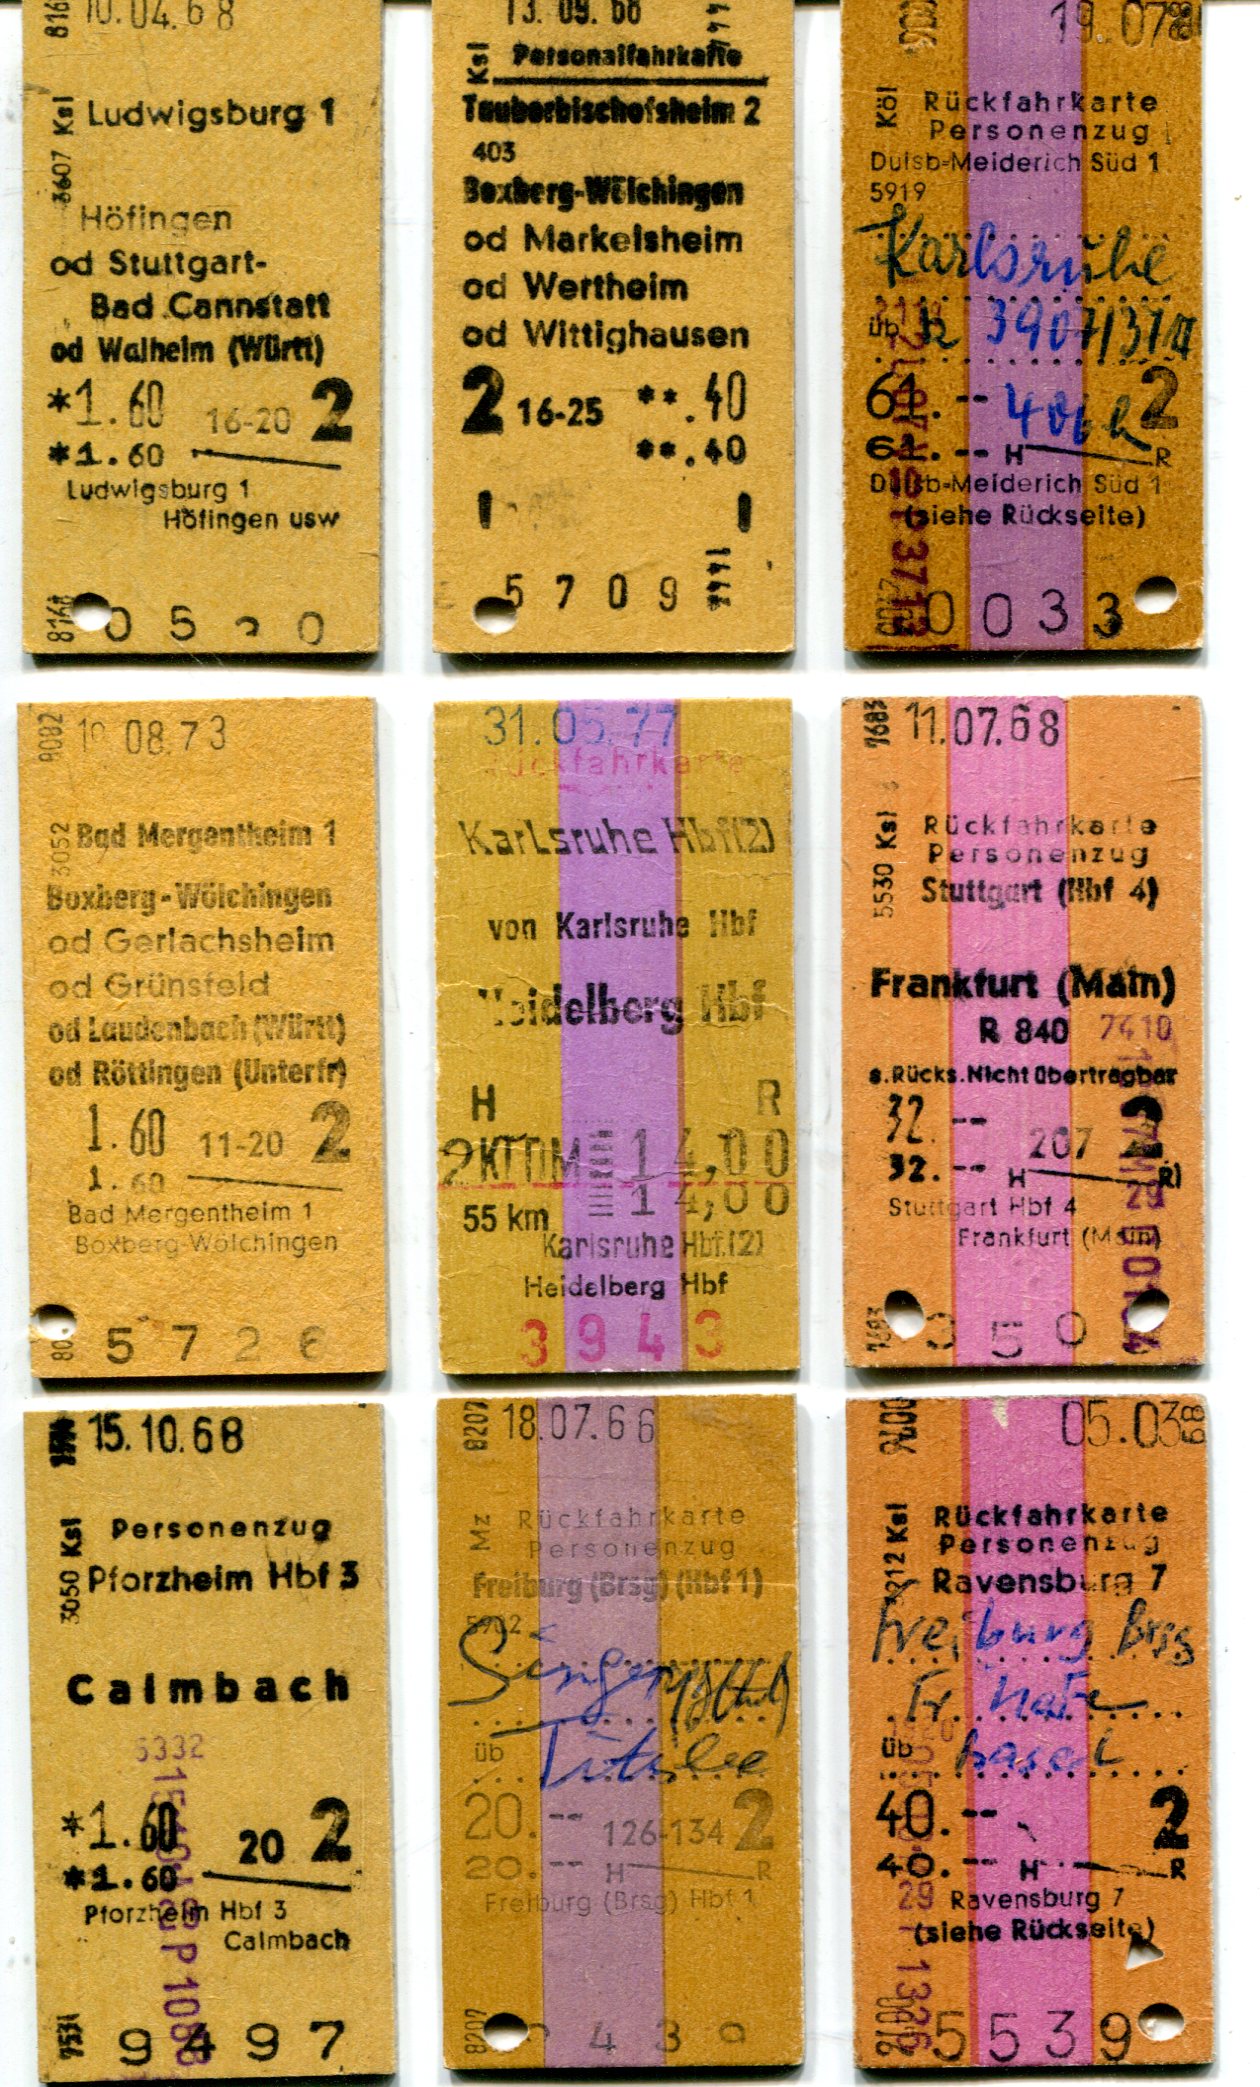 10.04.68
3607 Ksl
Ludwigsburg 1
Höfingen
od Stuttgart-
Bad Cannstatt
od Walheim (Württ)
*1.60 16-20 2
*1.60
Ludwigsburg 1
Höfingen usw
8168
0 5
13.09.68
Ksl
Personalfahrkarte
Tauberbischofsheim 2
403
Boxberg-Wölchingen
od Markelsheim
od Wertheim
od Wittighausen
2 16-25 **.40
**.40
5709
19.07
Köl
Rückfahrkarte
Personenzug
Duisb-Meiderich Süd 1
5919
Karlsruhe
üb
61.-- 2
61.-- H R
Duisb-Meiderich Süd 1
(siehe Rückseite)
0033
8082
08.73
3052
Bad Mergentheim 1
Boxberg-Wölchingen
od Gerlachsheim
od Grünsfeld
od Laudenbach (Württ)
od Röttingen (Unterfr)
1.60 11-20 2
1.60
Bad Mergentheim 1
Boxberg-Wölchingen
5726
31.05.77
Rückfahrkarte
Karlsruhe Hbf(2)
von Karlsruhe Hbf
Heidelberg Hbf
H R
2KTDM 14,00
55 km 14,00
Karlsruhe Hbf.(2)
Heidelberg Hbf
3943
7683
11.07.68
5530 Ksl
Rückfahrkarte
Personenzug
Stuttgart (Hbf 4)
Frankfurt (Main)
R 840 7410
s.Rücks.Nicht übertragbar
32.-- 2
207
32.-- H R)
Stuttgart Hbf 4
Frankfurt (Main)
7683
350
15.10.68
3050 Ksl
Personenzug
Pforzheim Hbf 3
Calmbach
5332
*1.60 20 2
*1.60
Pforzheim Hbf 3
Calmbach
7531
9497
8207
18.07.66
Mz
Rückfahrkarte
Personenzug
Freiburg (Brsg) (Hbf 1)
5902
üb Titisee
20.-- 126-134 2
20.-- H R
Freiburg (Brsg) Hbf 1
8207
439
9100
05.03 68
3912 Ksl
Rückfahrkarte
Personenzug
Ravensburg 7
Freiburg Brsg
üb Basel
40.-- 2
40.-- H R
29
Ravensburg 7
(siehe Rückseite)
9100
5539